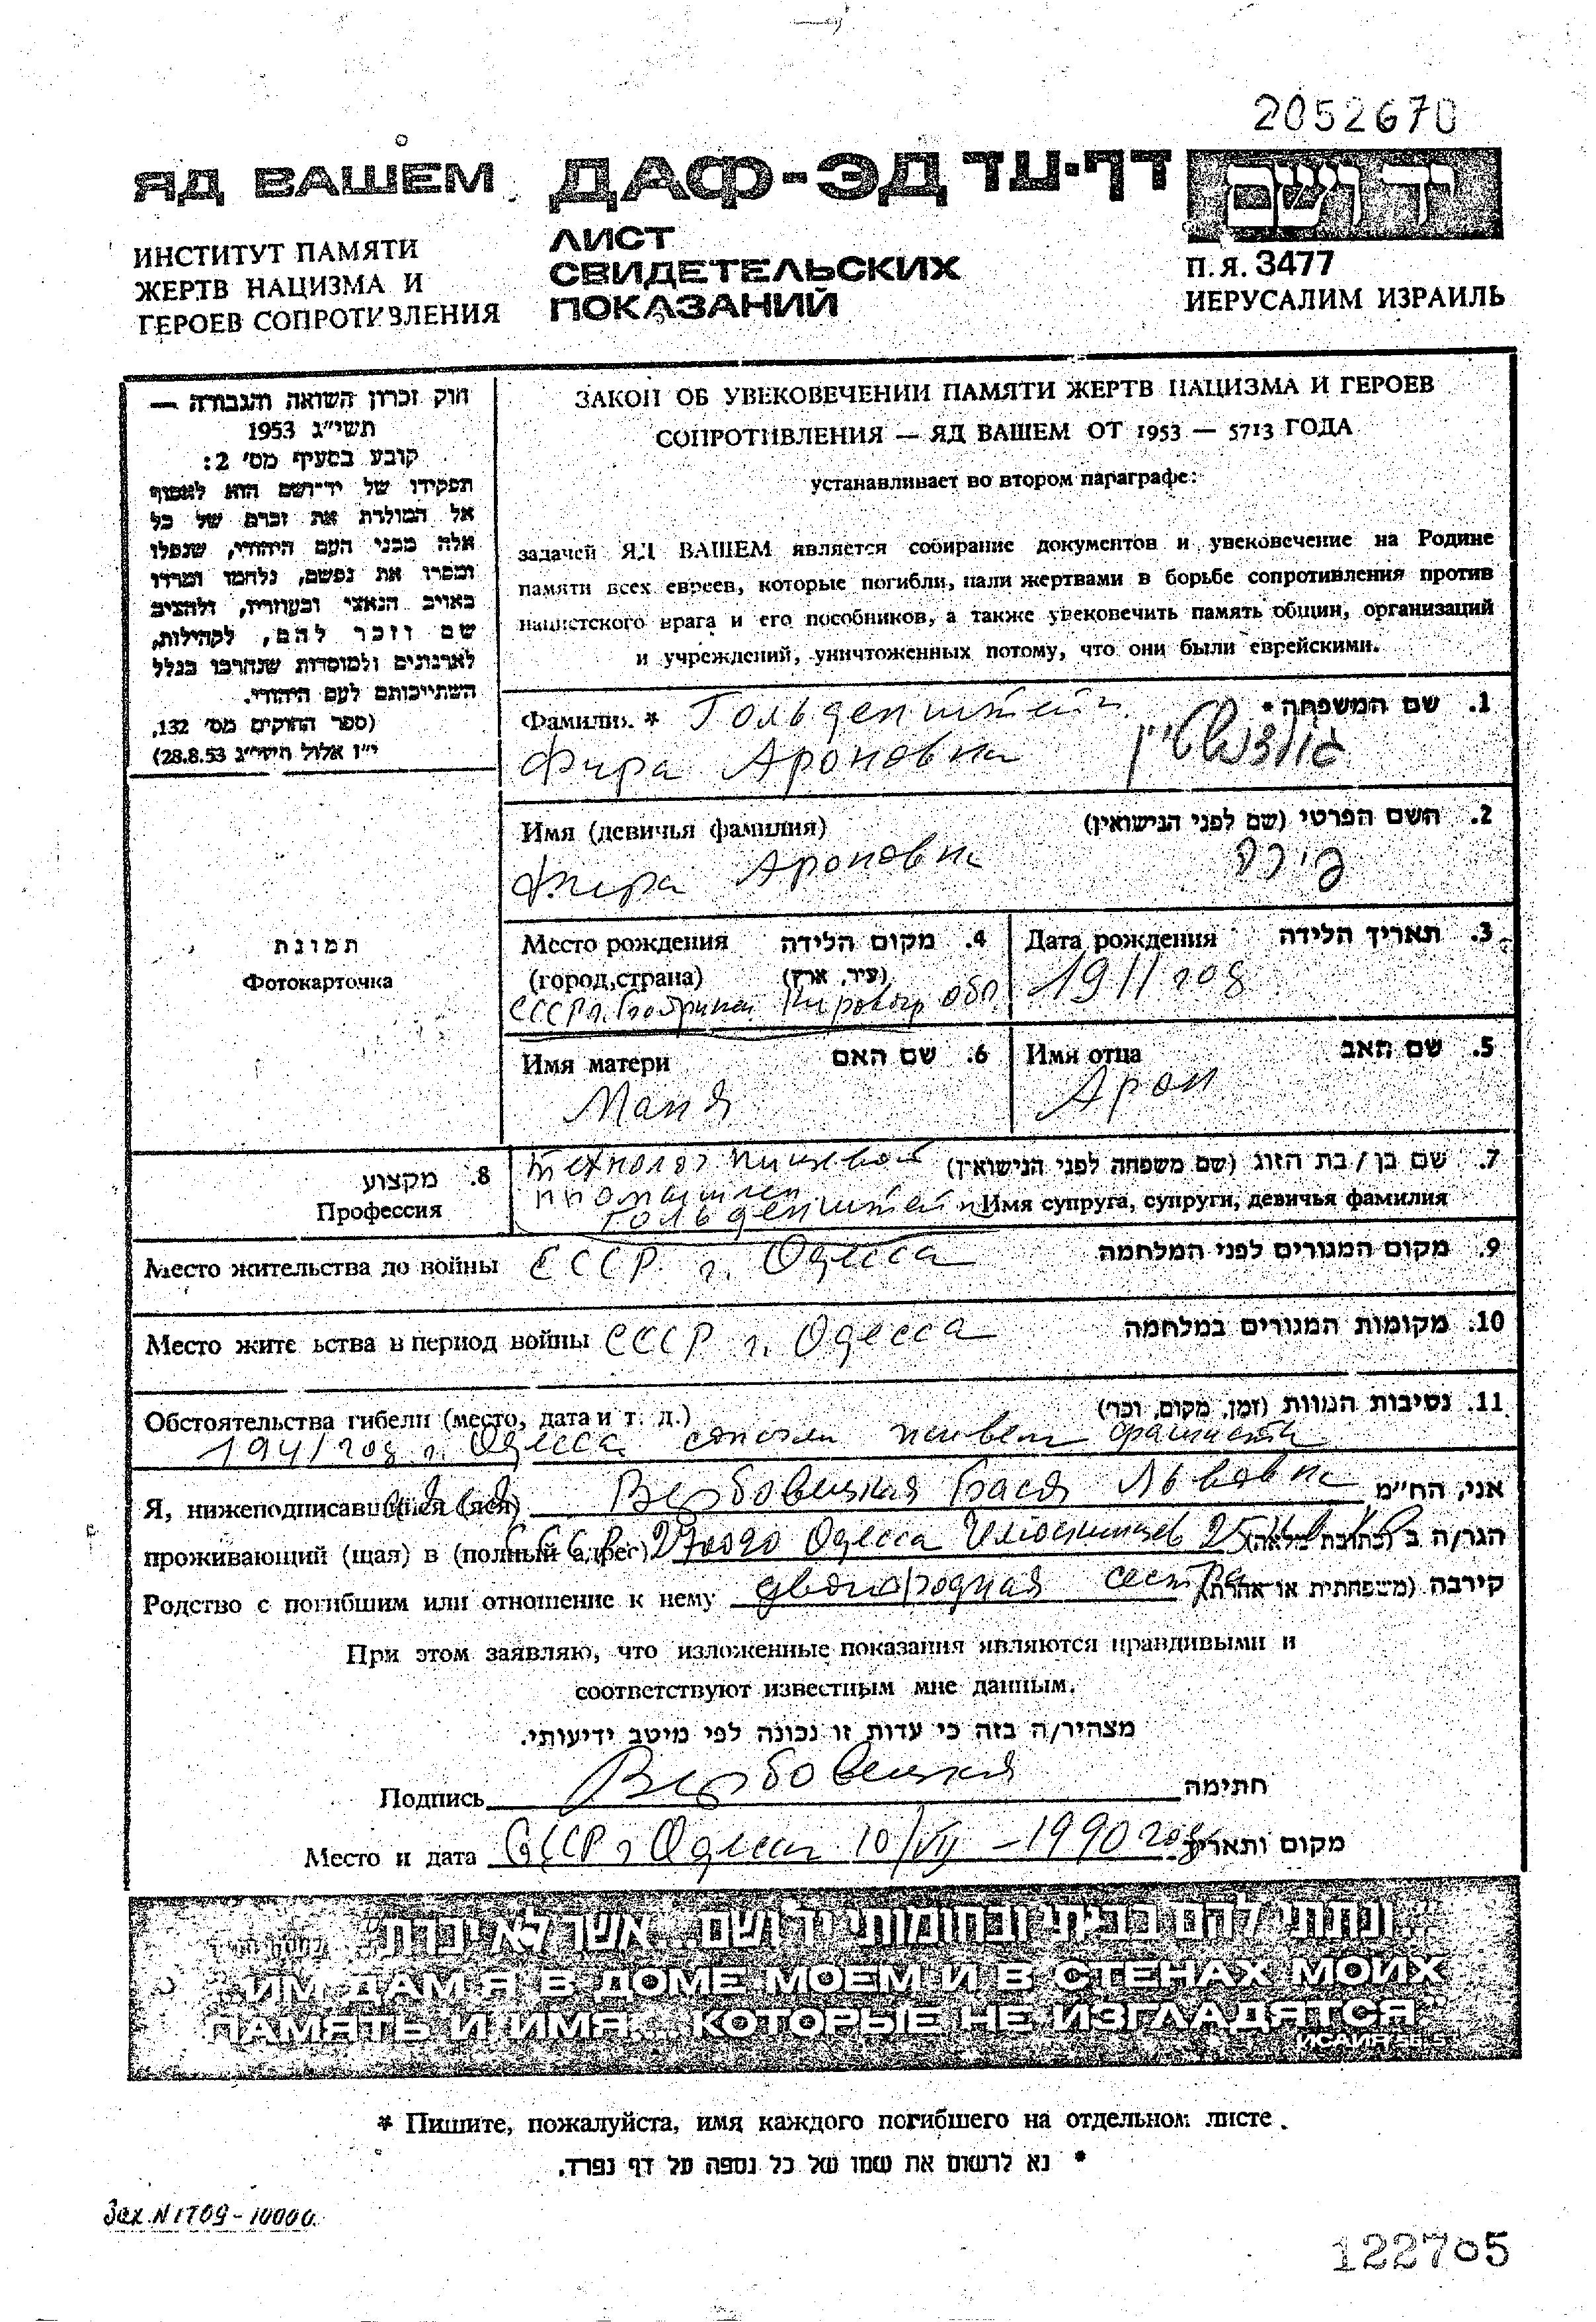 2052670
ЯД ВАШЕМ ДАФ-ЭД דף-עד יד ושם
ИНСТИТУТ ПАМЯТИ
ЖЕРТВ НАЦИЗМА И
ГЕРОЕВ СОПРОТИВЛЕНИЯ
ЛИСТ
СВИДЕТЕЛЬСКИХ
ПОКАЗАНИЙ
П.Я. 3477
ИЕРУСАЛИМ ИЗРАИЛЬ
חוק זכרון השואה והגבורה —
תשי״ג 1953
קובע בסעיף מס׳ 2:
תפקידו של יד־ושם הוא לאסוף
אל המולדת את זכרם של כל
אלה מבני העם היהודי, שנפלו
ומסרו את נפשם, נלחמו ומרדו
באויב הנאצי ובעוזריו, ולהציב
שם וזכר להם, לקהילות,
לארגונים ולמוסדות שנחרבו בגלל
השתייכותם לעם היהודי.
(ספר החוקים מס׳ 132,
י״ז אלול תשי״ג 28.8.53)
ЗАКОН ОБ УВЕКОВЕЧЕНИИ ПАМЯТИ ЖЕРТВ НАЦИЗМА И ГЕРОЕВ
СОПРОТИВЛЕНИЯ — ЯД ВАШЕМ ОТ 1953 — 5713 ГОДА
устанавливает во втором параграфе:
задачей ЯД ВАШЕМ является собирание документов и увековечение на Родине
памяти всех евреев, которые погибли, пали жертвами в борьбе сопротивления против
нацистского врага и его пособников, а также увековечить память общин, организаций
и учреждений, уничтоженных потому, что они были еврейскими.
Фамилия * Гольденштейн 1. שם המשפחה *
Фира Ароновна גולדנשטיין
Имя (девичья фамилия) 2. השם הפרטי (שם לפני הנישואין)
Фира Ароновна פירה
תמונת
Фотокарточка
Место рождения 4. מקום הלידה
(город,страна) (עיר, ארץ)
СССР г. Кировогр обл
Дата рождения 3. תאריך הלידה
1911 год
Имя матери 6. שם האם
Маня
Имя отца 5. שם האב
Арон
8. מקצוע
Профессия
технолог пищевой
промышлен
7. שם בן / בת הזוג (שם משפחה לפני הנישואין)
Имя супруга, супруги, девичья фамилия
Гольденштейн
Место жительства до войны СССР г. Одесса 9. מקום המגורים לפני המלחמה
Место жите ьства в период войны СССР г. Одесса 10. מקומות המגורים במלחמה
Обстоятельства гибели (место, дата и т. д.) 11. נסיבות המוות (זמן, מקום, וכו׳)
1941 год г. Одесса сожгли живьем фашисты
Я, нижеподписавшийся (аяся) Вербовецкая Бася Львовна אני, הח״מ
проживающий (щая) в (полный адрес) СССР 270020 Одесса Челюскинцев 25 הגר/ה ב (כתובת מלאה)
Родство с погибшим или отношение к нему двоюродная сестра קירבה (משפחתית או אחרת)
При этом заявляю, что изложенные показания являются правдивыми и
соответствуют известным мне данным.
מצהיר/ה בזה כי עדות זו נכונה לפי מיטב ידיעותי.
Подпись Вербовецкая חתימה
Место и дата СССР г Одесса 10/VII – 1990 год מקום ותאריך
"...ונתתי להם בביתי ובחומותי יד ושם... אשר לא יכרת"
"ИМ ДАМ Я В ДОМЕ МОЕМ И В СТЕНАХ МОИХ
ПАМЯТЬ И ИМЯ... КОТОРЫЕ НЕ ИЗГЛАДЯТСЯ"
ИСАИЯ 56, 5
* Пишите, пожалуйста, имя каждого погибшего на отдельном листе.
* נא לרשום את שמו של כל נספה על דף נפרד.
Зак. N 1709 - 10000.
122705